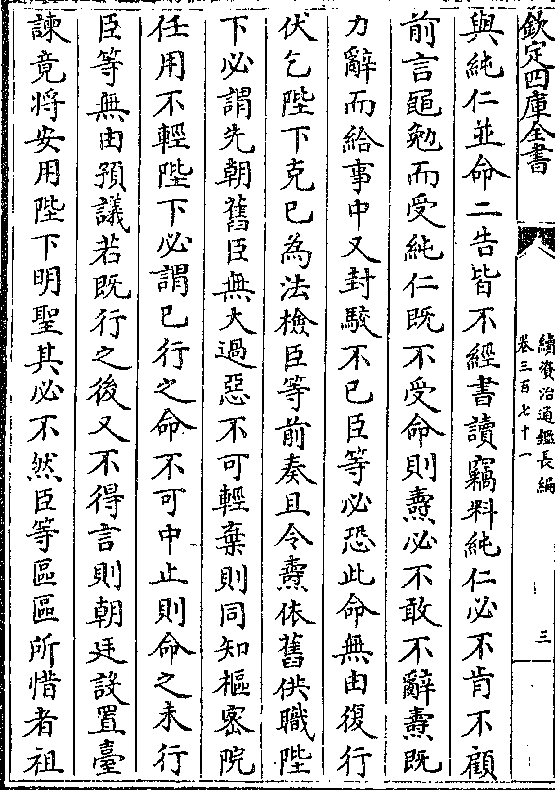 欽定四庫全書
續資治通鑑長編
卷三百七十一
三
與純仁並命二告皆不經書讀竊料純仁必不肯不顧
前言黽勉而受純仁既不受命則燾必不敢不辭燾既
力辭而給事中又封駁不已臣等必恐此命無由復行
伏乞陛下克已為法檢臣等前奏且令燾依舊供職陛
下必謂先朝舊臣無大過惡不可輕棄則同知樞密院
任用不輕陛下必謂已行之命不可中止則命之未行
臣等無由預議若既行之後又不得言則朝廷設置臺
諫竟將安用陛下明聖其必不然臣等區區所惜者祖